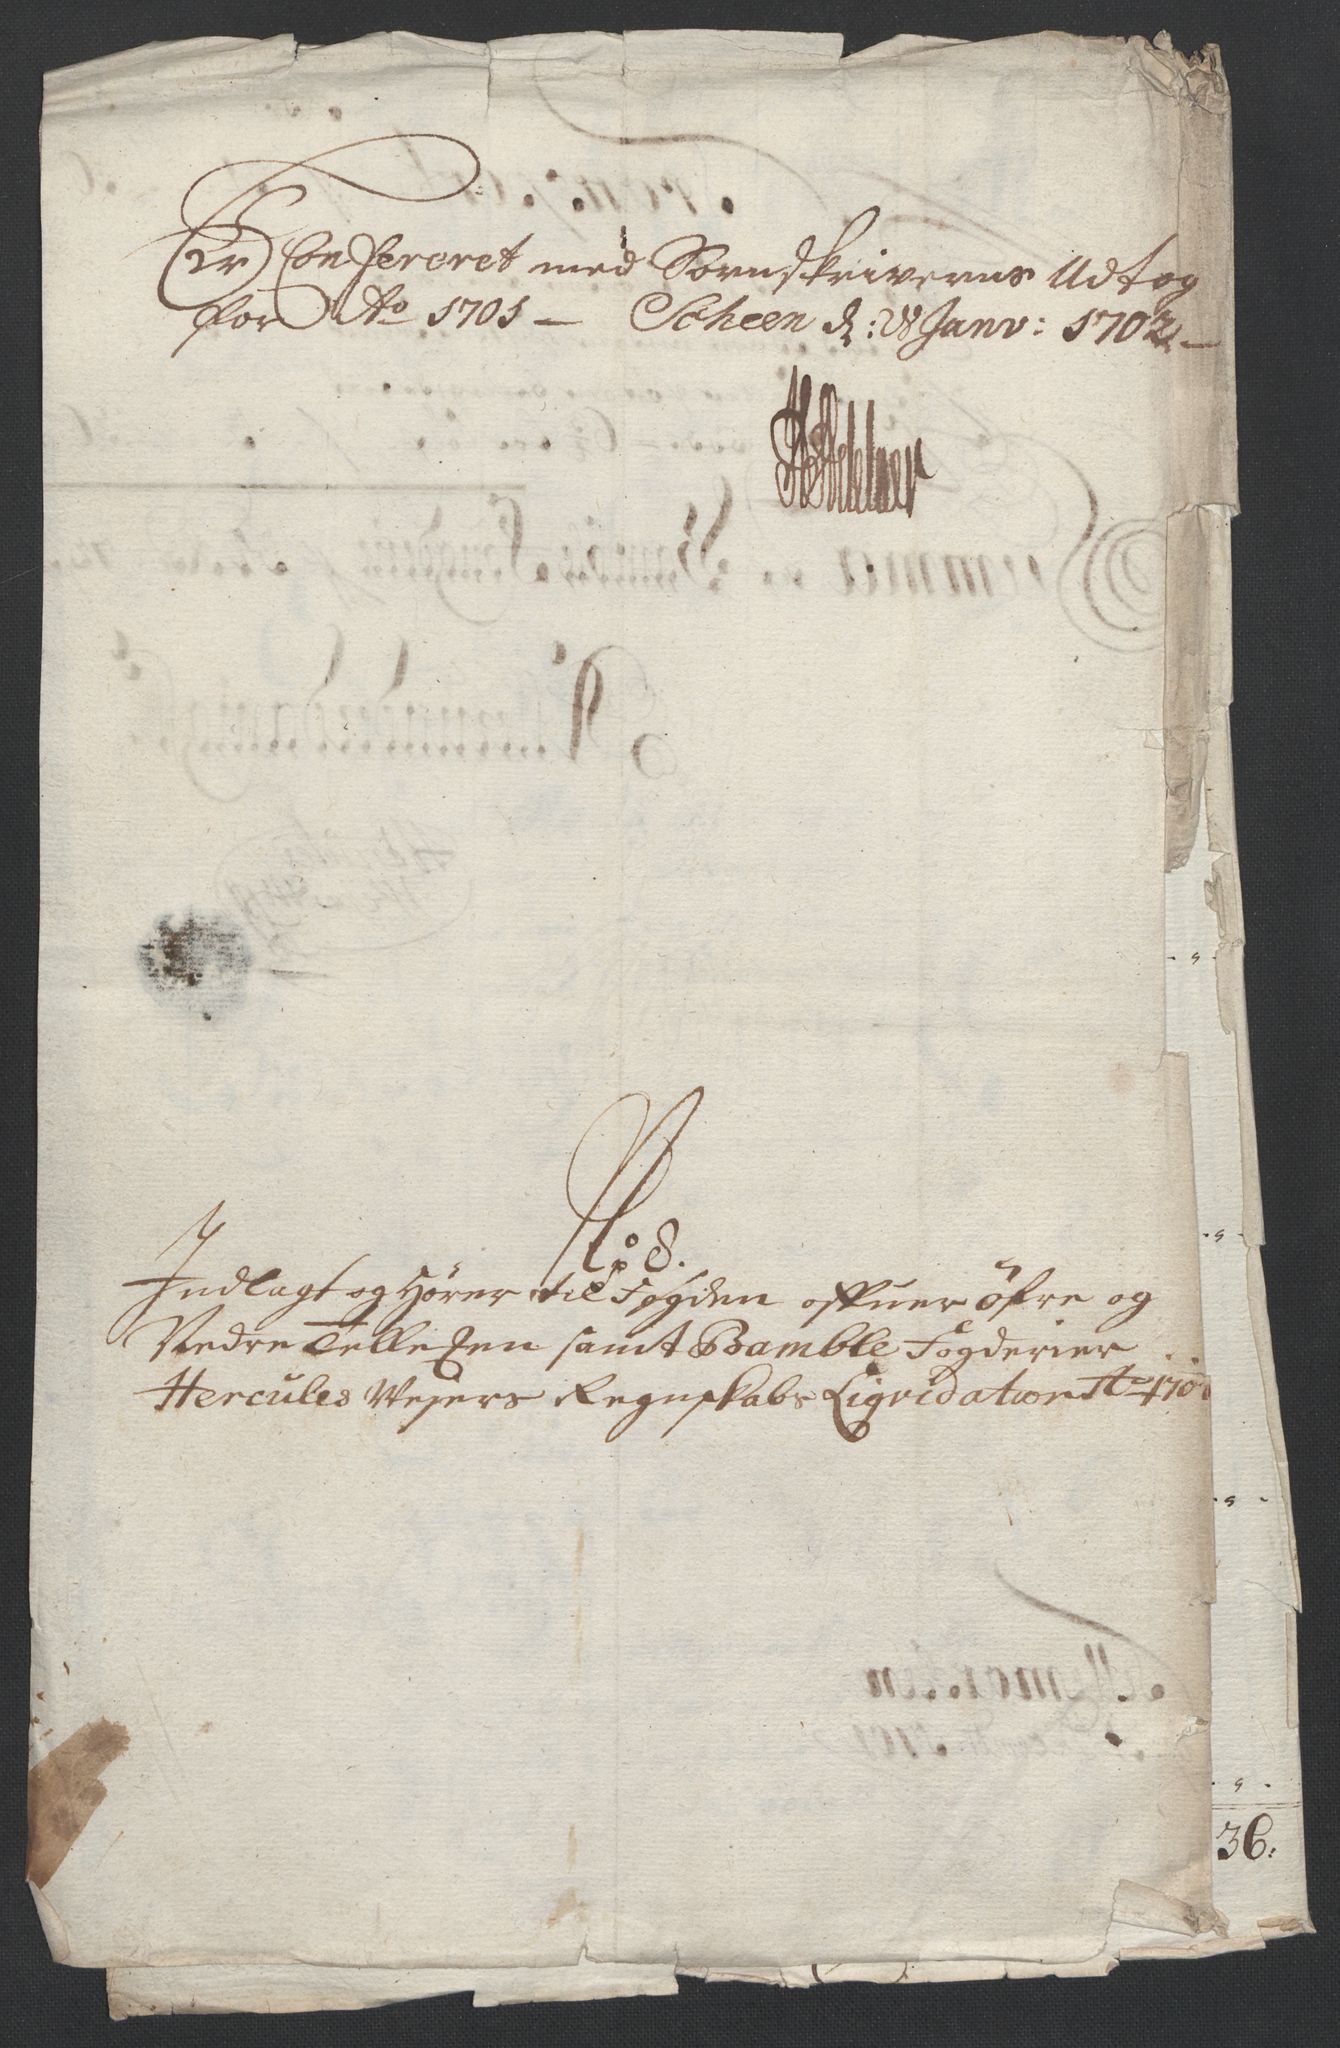 Er Confereret med Sornskriverns Udtog
for Ao 1701 — Scheen d: 28 Janv: 1702 —
HAdeler
No 8.
Indlagt og Hører til Fogden offuer öfre og
Nedre Tellemen samt Bamble Fogderier
Hercules Weyers Regnskabs Liqvidation Ao 170
36.